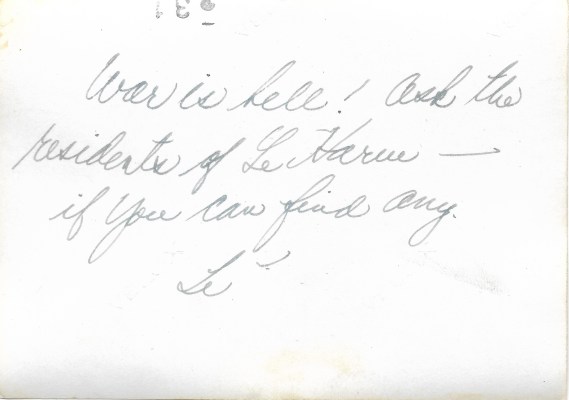 War is hell! Ask the
residents of Le Harve —
if you can find any.
Le'